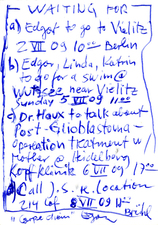 — WAITING FOR
a) Edgar to go to Vielitz
2 VII 09 10:00 Berlin
b) Edgar, Linda, Katrin
to go for a swim @
Wutzsee near Vielitz
Sunday 5 VII 09 11:00
c) Dr. Haux to talk about
Post-Glioblastoma-
operation treatment w/
Mother @ Heidelberg
Kopfklinik 6 VII 09 17:00
d) Call J.S. re. location
214 8 VII 09
Brühl
"Carpe diem"